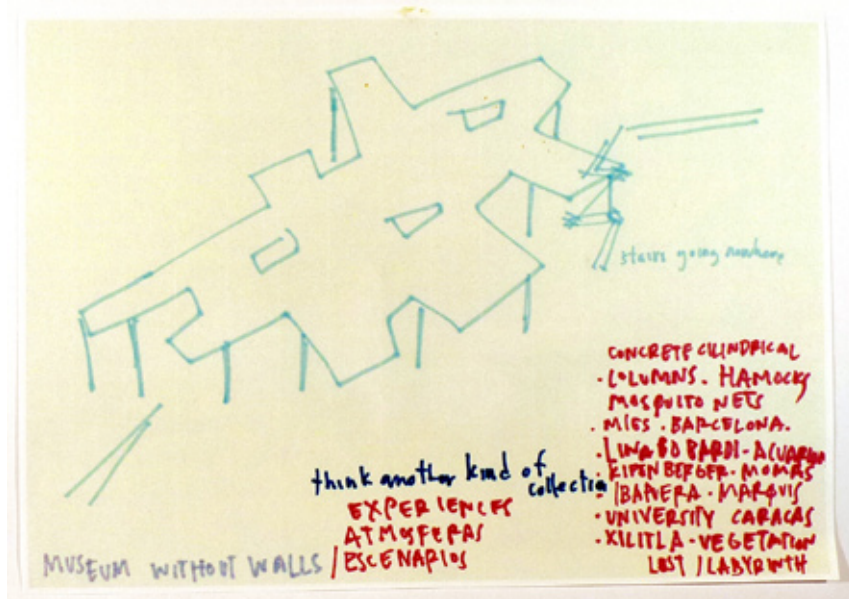 stairs going nowhere
CONCRETE CILINDRICAL
· COLUMNS · HAMOCKS
MOSQUITO NETS
· MIES · BARCELONA.
· LINA BO BARDI - ACUARIO
· KIPENBERGER · MOMAS
· IBAPUERA · MARQUIS
· UNIVERSITY CARACAS
· XILITLA - VEGETATION
LOST / LABYRINTH
think another kind of
collection
EXPERIENCES
ATMOSFERAS
/ESCENARIOS
MUSEUM WITHOUT WALLS